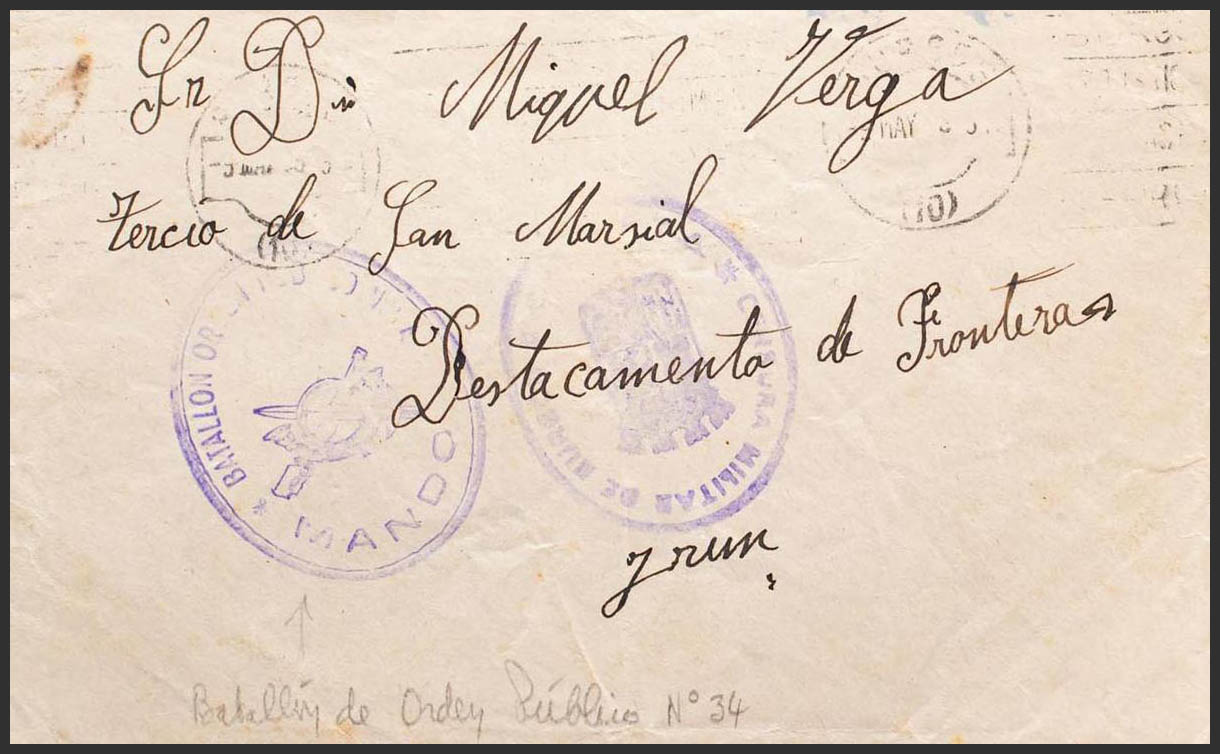 Sr Dn Miguel Verga
MAY
(01)
(01)
Tercio de San Marsial
Destacamento de Fronteras
* BATALLON
MANDO
* CENSURA MILITAR DE
Yrun
Batallón de Orden Público Nº 34